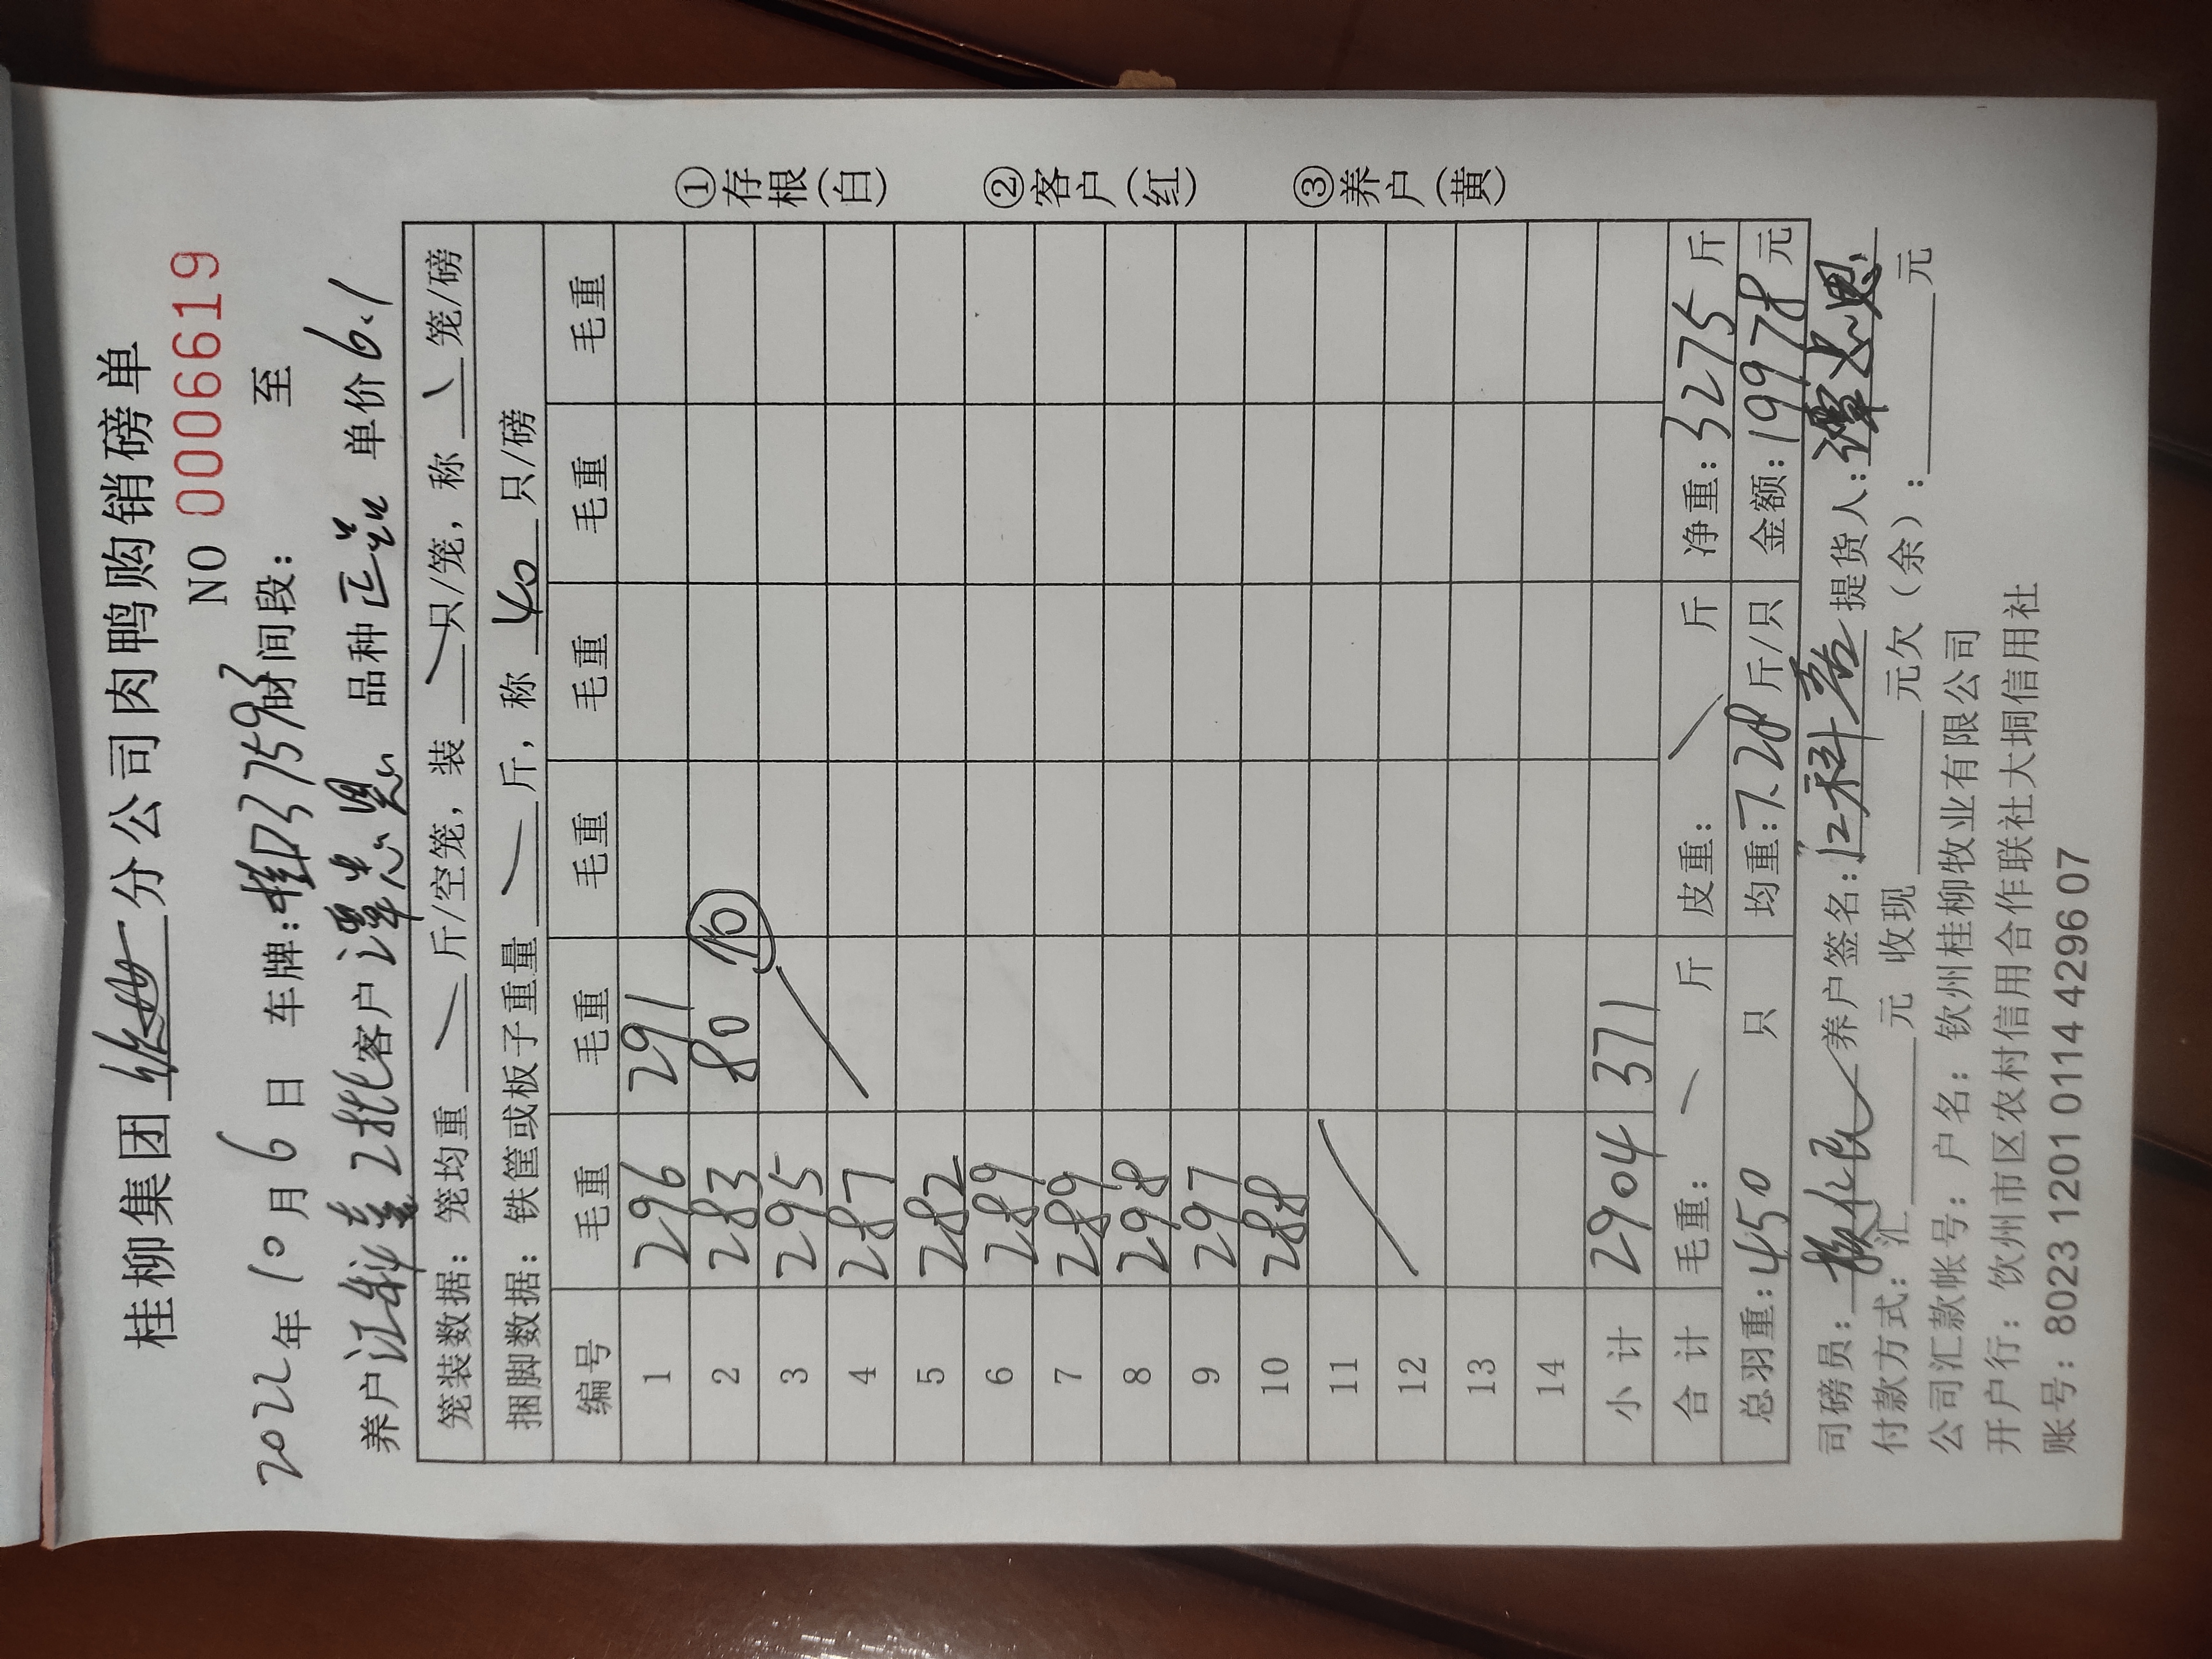 桂柳集团 分公司肉鸭购销磅单
NO 0006619
2022年10月6日 车牌:桂D37593 时间段: 至
养户江科 2批客户谭忠恩 品种正品 单价6.1
笼装数据: 笼均重 斤/空笼, 装 只/笼, 称 笼/磅
捆脚数据: 铁筐或板子重量 斤, 称 40 只/磅
编号 毛重 毛重 毛重 毛重 毛重 毛重
1 296 291
2 283 80 10
3 295
4 287
5 282
6 289
7 289
8 298
9 297
10 288
11
12
13
14
小计 2904 371
合计 毛重: 斤 皮重: 斤 净重: 3275 斤
总羽重: 450 只 均重: 7.28 斤/只 金额: 19978 元
司磅员: 养户签名: 江科 提货人: 谭忠恩
付款方式: 汇 元 收现 元欠(余): 元
公司汇款帐号: 户名: 钦州桂柳牧业有限公司
开户行: 钦州市区农村信用合作联社大垌信用社
账号: 8023 1201 0114 4296 07
①存根(白) ②客户(红) ③养户(黄)